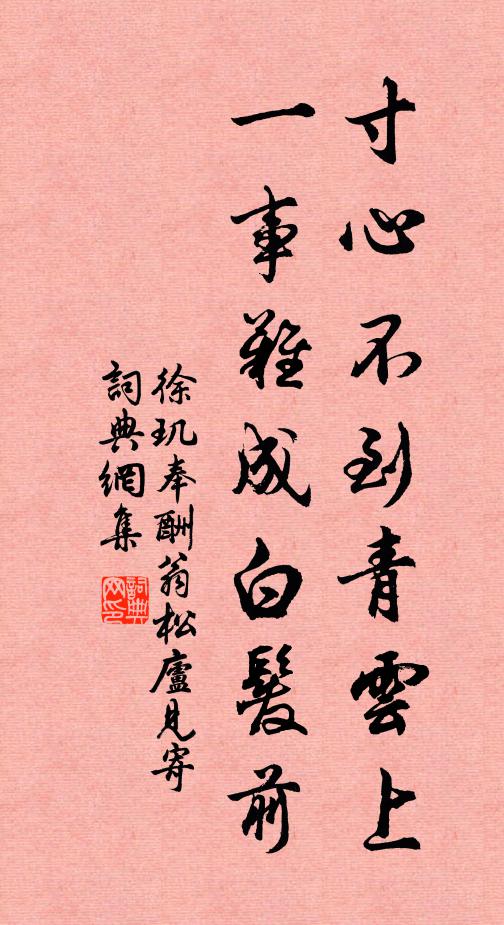 寸心不到青雲上
一事難成白髮前
徐玑奉酬翁松廬見寄
詞典網集
詞典网印